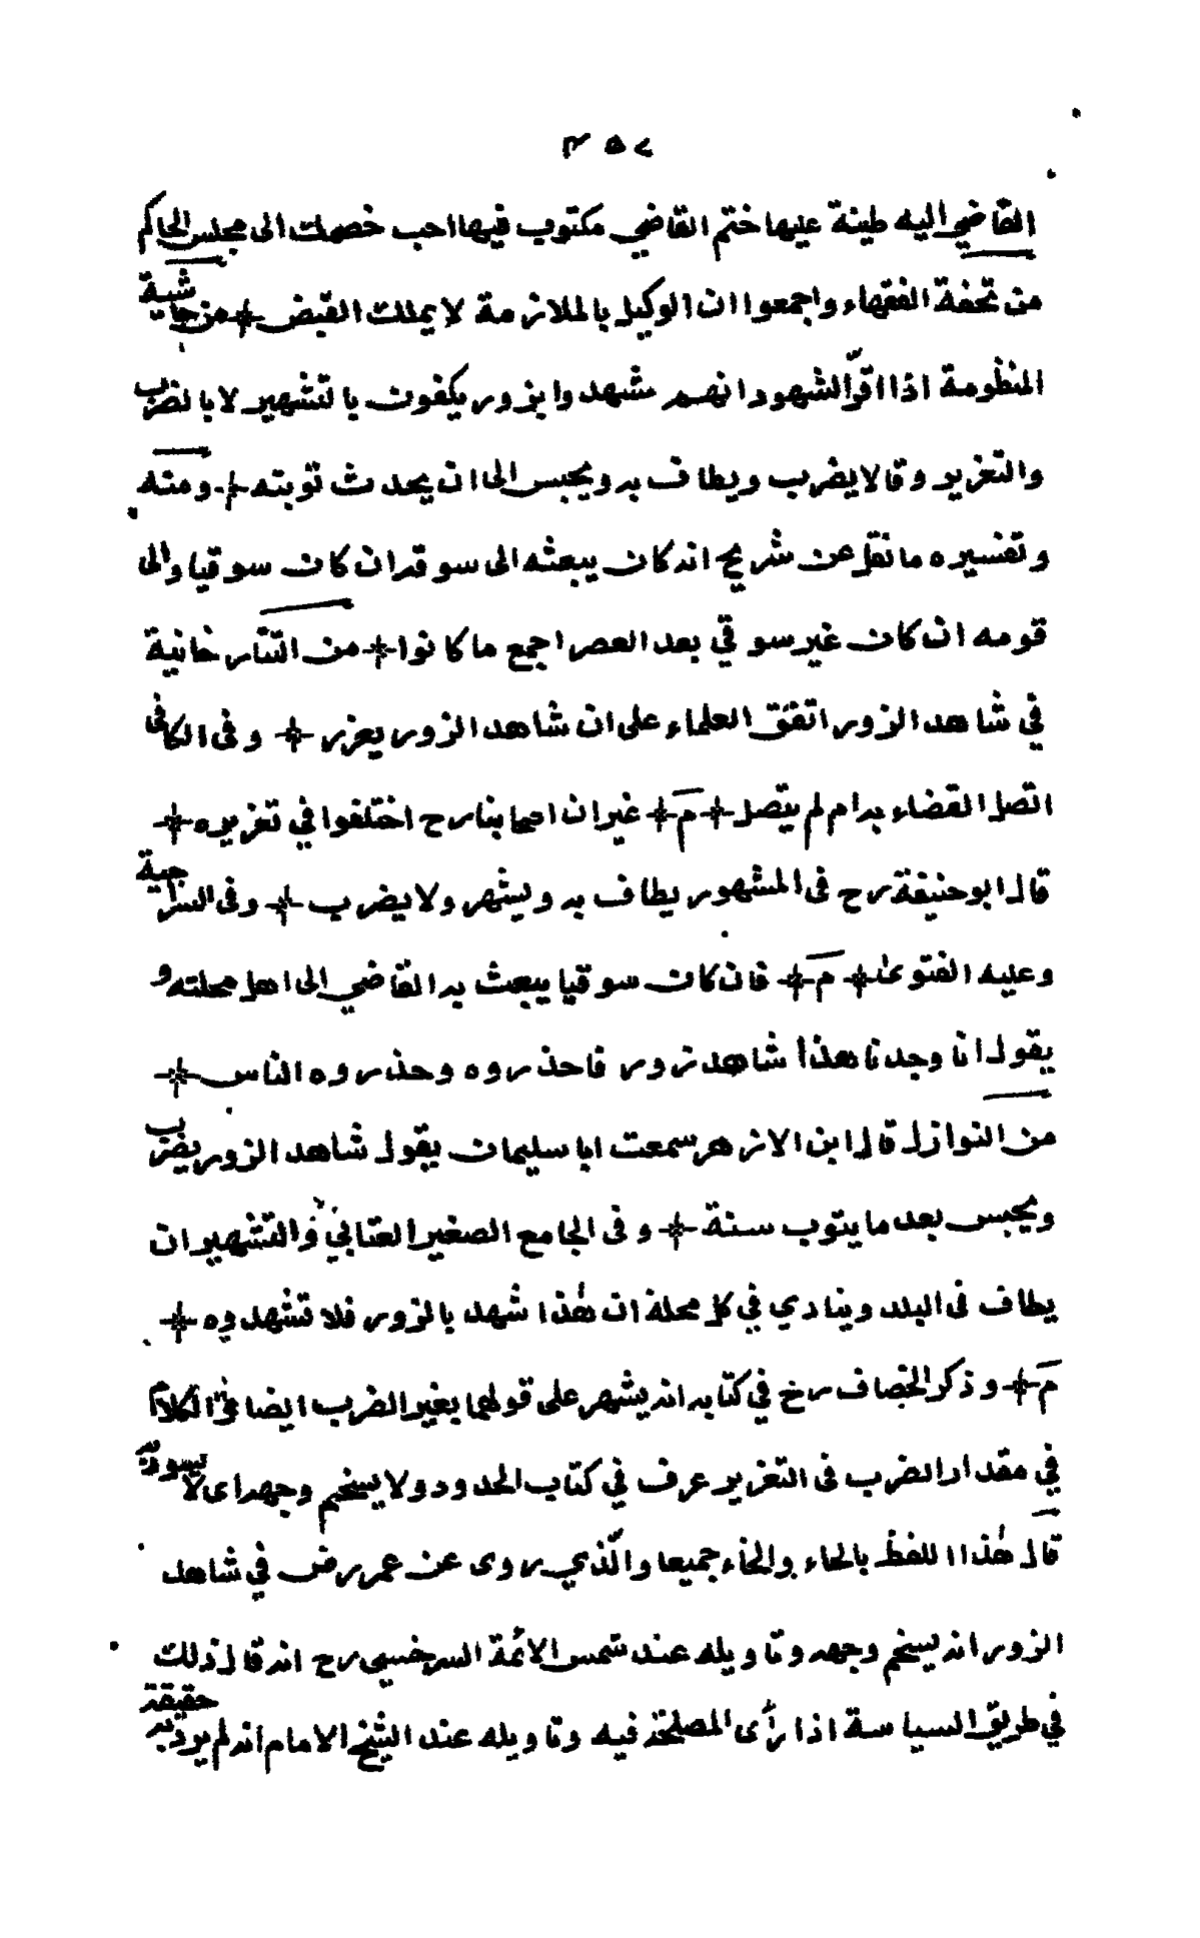 ٣٥٧
القاضي اليه طينة عليها ختم القاضي مكتوب فيها احب خصمك الى مجلس الحاكم
من تحفة الفقهاء واجمعوا ان الوكيل بالملازمة لا يملك القبض + من حاشية
المنظومة اذا اقرّ الشهود انهم شهدوا بزور يكفون بالتشهير لا بالضرب
والتعزير وقالا يضرب ويطاف به ويحبس الى ان يحدث توبته + ومنه
وتفسيره ما نقل عن شريح انه كان يبعثه الى سوقه ان كان سوقيا والى
قومه ان كان غير سوقي بعد العصر اجمع ما كانوا + من التتار خانية
في شاهد الزور اتفق العلماء على ان شاهد الزور يعزر + وفى الكافى
اتصل القضاء به ام لم يتصل + م + غير ان اصحابنا رح اختلفوا في تعزيره +
قال ابو حنيفة رح فى المشهور يطاف به ويشهر ولا يضرب + وفى السراجية
وعليه الفتوى + م + فان كان سوقيا يبعث به القاضي الى اهل محلته و
يقول انا وجدنا هذا شاهد زور فاحذروه وحذروه الناس +
من النوازل قال ابن الازهر سمعت ابا سليمان يقول شاهد الزور يضرب
ويحبس بعد ما يتوب سنة + وفى الجامع الصغير العتابي والتشهير ان
يطاف فى البلد وينادي في كل محلة ان هذا شهد بالزور فلا تشهدوه +
م + وذكر الخصاف رح في كتابه انه يشهر على قولهما بغير الضرب ايضا الكلام
في مقدار الضرب فى التعزير عرف في كتاب الحدود ولا يسخم وجهه اى لا يسودّ
قال هذا اللفظ بالحاء والخاء جميعا والّذي روى عن عمر رض في شاهد
الزور انه يسخم وجهه وتاويله عند شمس الائمة السرخسي رح انه قال ذلك
في طريق السياسة اذا رأى المصلحة فيه وتاويله عند الشيخ الامام انه لم يرد به حقيقة